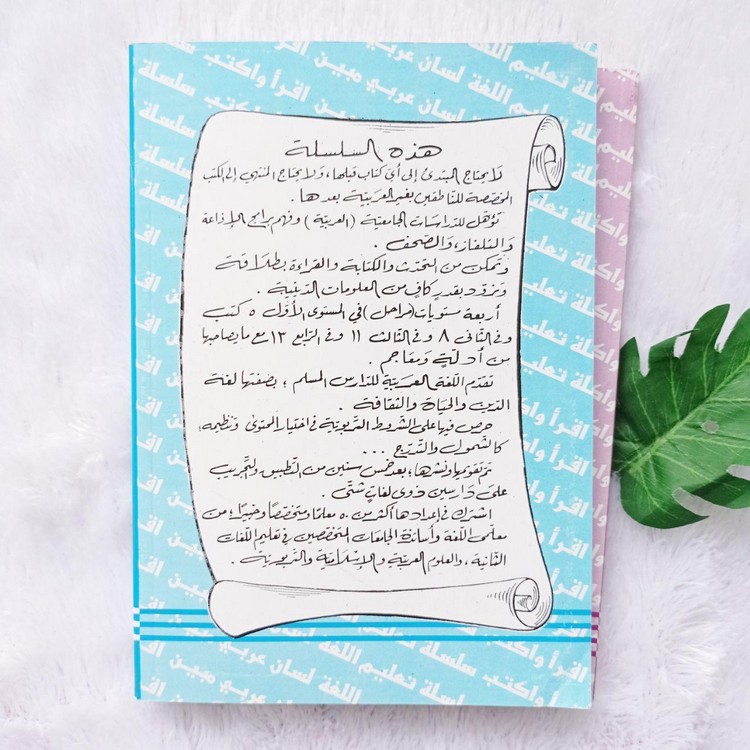 هذه السلسلة
لا يحتاج المبتدئ إلى أي كتاب قبلها، ولا يحتاج المنتهي إلى الكتب
المخصصة للناطقين بغير العربية بعدها.
تؤهل للدراسات الجامعية (العربية) وفهم برامج الإذاعة
والتلفاز، والصحف.
وتمكن من التحدث والكتابة والقراءة بطلاقة
وتزود بقدر كاف من العلومات الدينية.
أربعة مستويات (مراحل) في المستوى الأول ٥ كتب
وفي الثاني ٨ وفي الثالث ١١ وفي الرابع ١٣ مع ما يصاحبها
من أدلة ومعاجم.
تقدم اللغة العربية للدارس المسلم؛ بصفتها لغة
الدين والحياة والثقافة.
حرص فيها على الشروط التربوية في اختيار المحتوى وتنظيمه؛
كالشمول والتدرج ...
تم تقويمها ونشرها؛ بعد خمس سنين من التطبيق والتجريب
على دارسين ذوي لغات شتى.
اشترك في إعدادها أكثر من ٥٠ معلمًا ومتخصصًا وخبيرًا؛ من
معلمي اللغة وأساتذة الجامعات المتخصصين في تعليم اللغات
الثانية، والعلوم العربية والإسلامية والتربوية.
سلسلة تعليم اللغة لسان عربي مبين اقرأ واكتب